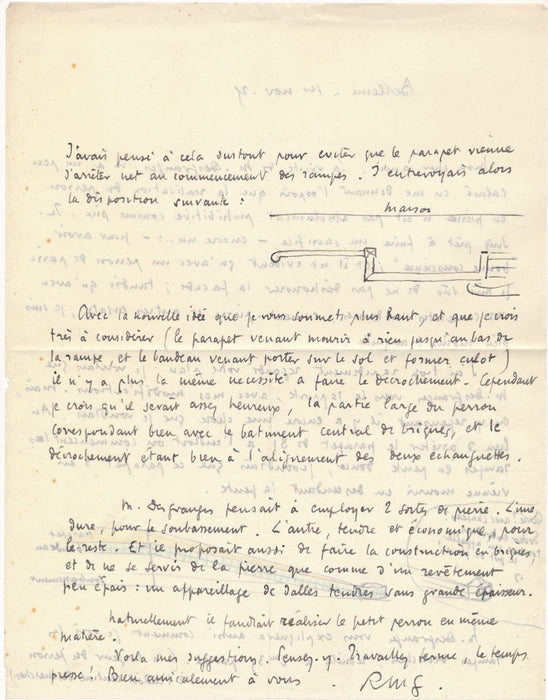 J'avais pensé à cela surtout pour éviter que le parapet vienne
s'arrêter net au commencement des rampes. J'entrevoyais alors
la disposition suivante :
maison
Avec la nouvelle idée que je vous soumets plus haut, et que je crois
très à considérer (le parapet venant mourir à rien jusqu'au bas de
la rampe, et le bandeau venant porter sur le sol et former culot)
il n'y a plus la même nécessité à faire le décrochement. Cependant
je crois qu'il serait assez heureux, la partie large du perron
correspondant bien avec le batiment central de briques, et le
décrochement étant bien à l'alignement des deux échauguettes.
M. Desgranges pensait à employer 2 sortes de pierre. L'une
dure, pour le soubassement. L'autre, tendre et économique, pour
le reste. Et il proposait aussi de faire la construction en briques,
et de ne se servir de la pierre que comme d'un revêtement
peu épais : un appareillage de dalles tendres sans grande épaisseur.
Naturellement il faudrait réaliser le petit perron en même
matière.
Voila mes suggestions. Pensez-y. Travaillez ferme, le temps
presse ! Bien amicalement à vous
RMG.